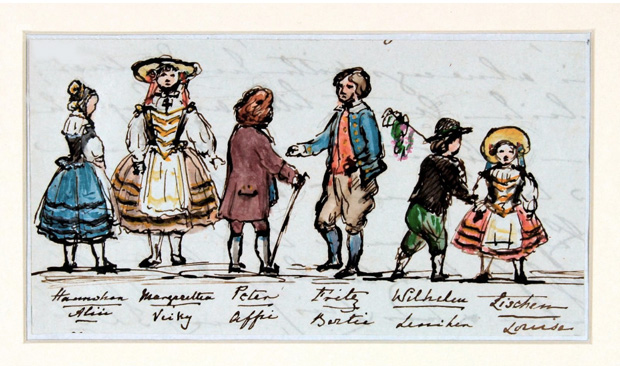 Hannchen Margarettha Peter Fritz Wilhelm Lischen
Alice Vicky Affie Bertie Lenchen Louise